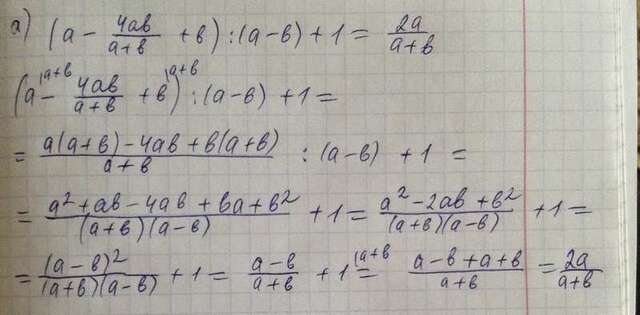 а) (a - 4ab/(a+b) + b) : (a-b) + 1 = 2a/(a+b)
(a^{\a+b} - 4ab/(a+b) + b^{\a+b}) : (a-b) + 1 =
= (a(a+b) - 4ab + b(a+b))/(a+b) : (a-b) + 1 =
= (a² + ab - 4ab + ba + b²)/((a+b)(a-b)) + 1 = (a² - 2ab + b²)/((a+b)(a-b)) + 1 =
= (a-b)²/((a+b)(a-b)) + 1 = (a-b)/(a+b) + 1^{\a+b} = (a-b+a+b)/(a+b) = 2a/(a+b)